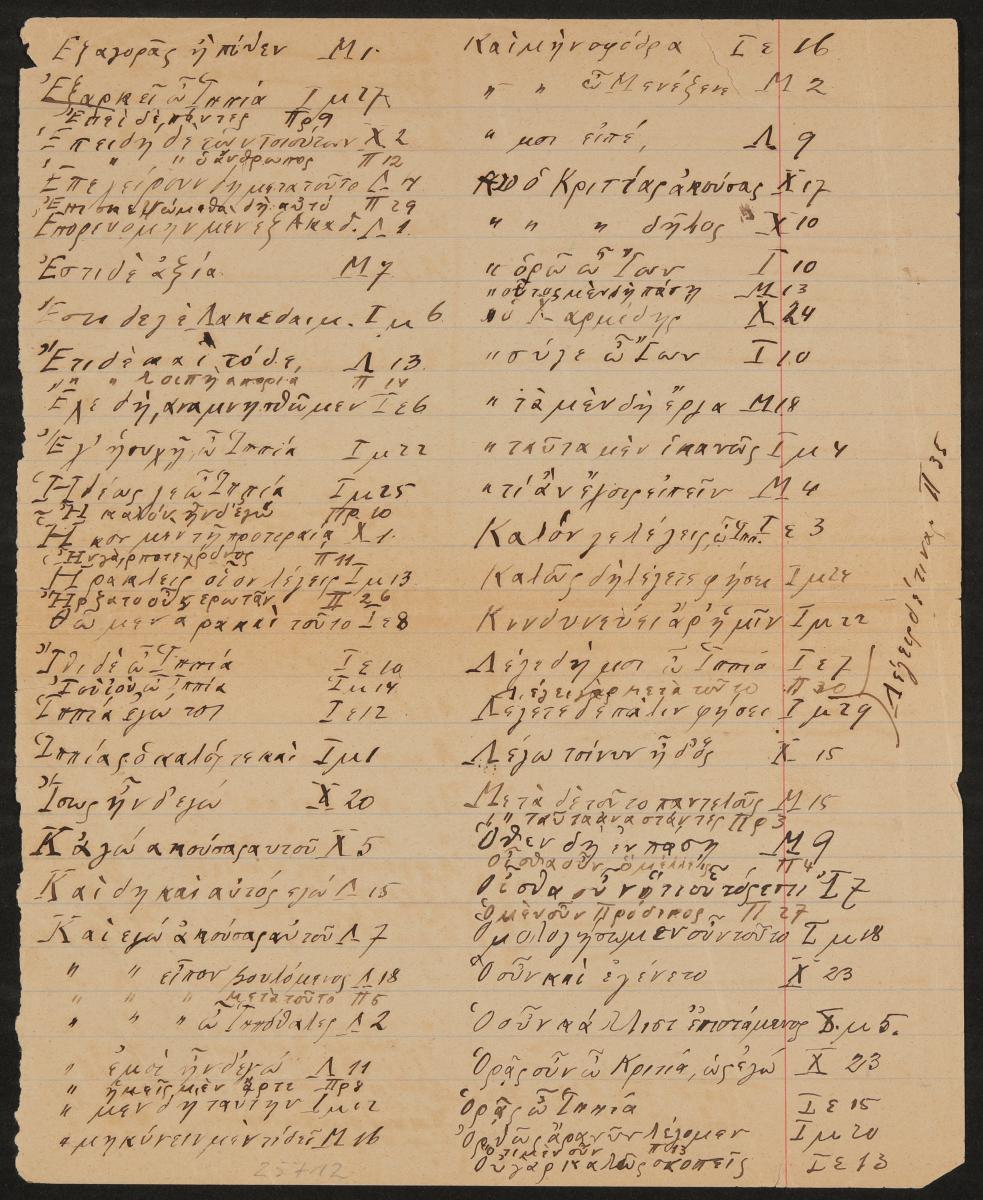 Ἐξ ἀγορᾶς ἢ πόθεν Μ 1
Ἐξαρκεῖ ὦ Ἱππία Ι μ 27
Ἐπεὶ δὲ πάντες Πρ 9
Ἐπειδὴ δὲ τῶν τοιούτων Χ 2
" " " ὁ ἄνθρωπος Π 12
Ἐπεχείρουν δὴ μετὰ τοῦτο Λ
Ἐπισκεψώμεθα δὴ αὐτό Π 29
Ἐπορευόμην μὲν ἐξ Ἀκαδ. Λ 1.
Ἔστι δὲ ἀξία Μ 7
Ἔστι δέ γε Λακεδαιμ. Ι μ 6
Ἔτι δὲ καὶ τόδε, Λ 13
" " " λοιπὴ ἀπορία Π 14
Ἔχε δή, ἀναμνησθῶμεν Ι ε 6
Ἔχ' ἡσυχῇ, ὦ Ἱππία Ι μ 22
Ἡδέως γε ὦ Ἱππία Ι μ 25
Ἦ καλόν, ἦν δ' ἐγώ Πρ. 10
Ἧκον μὲν τῇ προτεραίᾳ Χ 1.
Ἦν γάρ ποτε χρόνος Π 11
Ἡράκλεις οἷον λέγεις Ι μ 13
Ἤρξατο οὖν ἐρωτᾶν Π 26
Θῶμεν ἄρα καὶ τοῦτο Ι ε 8
Ἴθι δὲ ὦ Ἱππία Ι ε 10
Ἰοὺ ἰοὺ, ὦ Ἱππία Ι μ 14
Ἱππία ἐγώ τοι Ι ε 12
Ἱππίας ὁ καλός τε καὶ Ι μ 1
Ἴσως ἦν δ' ἐγώ Χ 20
Κἀγὼ ἀκούσας αὐτοῦ Χ 5
Καὶ δὴ καὶ αὐτὸς ἐγώ Λ 15
Καὶ ἐγὼ ἀκούσας αὐτοῦ Λ 7
" " εἶπον βουλόμενος Λ 18
" " " μετὰ τοῦτο Π 5
" " " ὦ Ἱππόθαλες Λ 2
" ἐμοί ἦν δ' ἐγώ Λ 11
" ἡμεῖς μὲν ἄρτι Πρ 8
" μὲν δὴ ταύτην Ι μ 12
" μηκύνειν μὲν τί δεῖ Μ 16
25712
Καὶ μὴν σφόδρα Ι ε 16
" " ὦ Μενέξενε Μ 2
" μοι εἰπέ, Λ 9
ὁ Κριτίας ἀκούσας Χ 17
" " " δῆλος Χ 10
" ὁρῶ ὦ Ἴων Ι 10
" οὗτος μὲν δὴ πάσῃ Μ 13
" ὁ Χαρμίδης Χ 24
" σύ γε ὦ Ἴων Ι 10
" τὰ μὲν δὴ ἔργα Μ 18
" ταῦτα μὲν ἱκανῶς Ι μ 4
" τί ἂν ἔχοις εἰπεῖν Μ 4
Καλόν γε λέγεις, ὦ Ἱππ. Ι ε 3
Καλῶς δὴ λέγετε φήσει Ι μ 24
Κινδυνεύει ἄρ' ἡμῖν Ι μ 22
Λέγε δή μοι ὦ Ἱππία Ι ε 7
Λέγεις γὰρ μετὰ τοῦτο Π 30
Λέγεις δέ τινας Π 35
Λέγετε δὲ πάλιν φήσει Ι μ 29
Λέγω τοίνυν ἦ δ' ὅς Χ 15
Μετὰ δὲ τοῦτο παντελοῦς Μ 15
" " ταῦτα ἀναστάντες Πρ 3
Ὅθεν δὴ ἐν πάσῃ Μ 9
Οἶσθα οὖν ὃ μέλλεις Π 4
Οἶσθα οὖν ἥτις οὖν τός ἐστι Ι 7
Ὁ μὲν οὖν Πρόδικος Π 27
Ὁμολογήσωμεν οὖν τοῦτο Ι μ 18
Ὃ οὖν καὶ ἐγένετο Χ 23
Ὃ οὖν κάλλιστ' ἐπιστάμενος Ι μ 5.
Ὁρᾷς οὖν ὦ Κριτία, ὡς ἐγώ Χ 23
Ὁρᾷς ὦ Ἱππία Ι ε 15
Ὀρθῶς ἄρα νῦν λέγομεν Ι μ 20
Ὅτι μὲν οὖν Π 13
Οὐ γὰρ καλῶς σκοπεῖς Ι ε 13